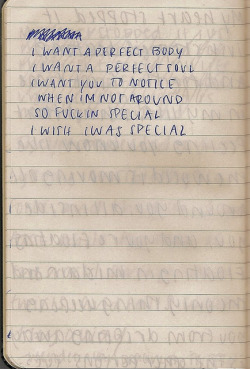 I WANT A PERFECT BODY
I WANT A PERFECT SOUL
I WANT YOU TO NOTICE
WHEN IM NOT AROUND
SO FUCKIN SPECIAL
I WISH I WAS SPECIAL